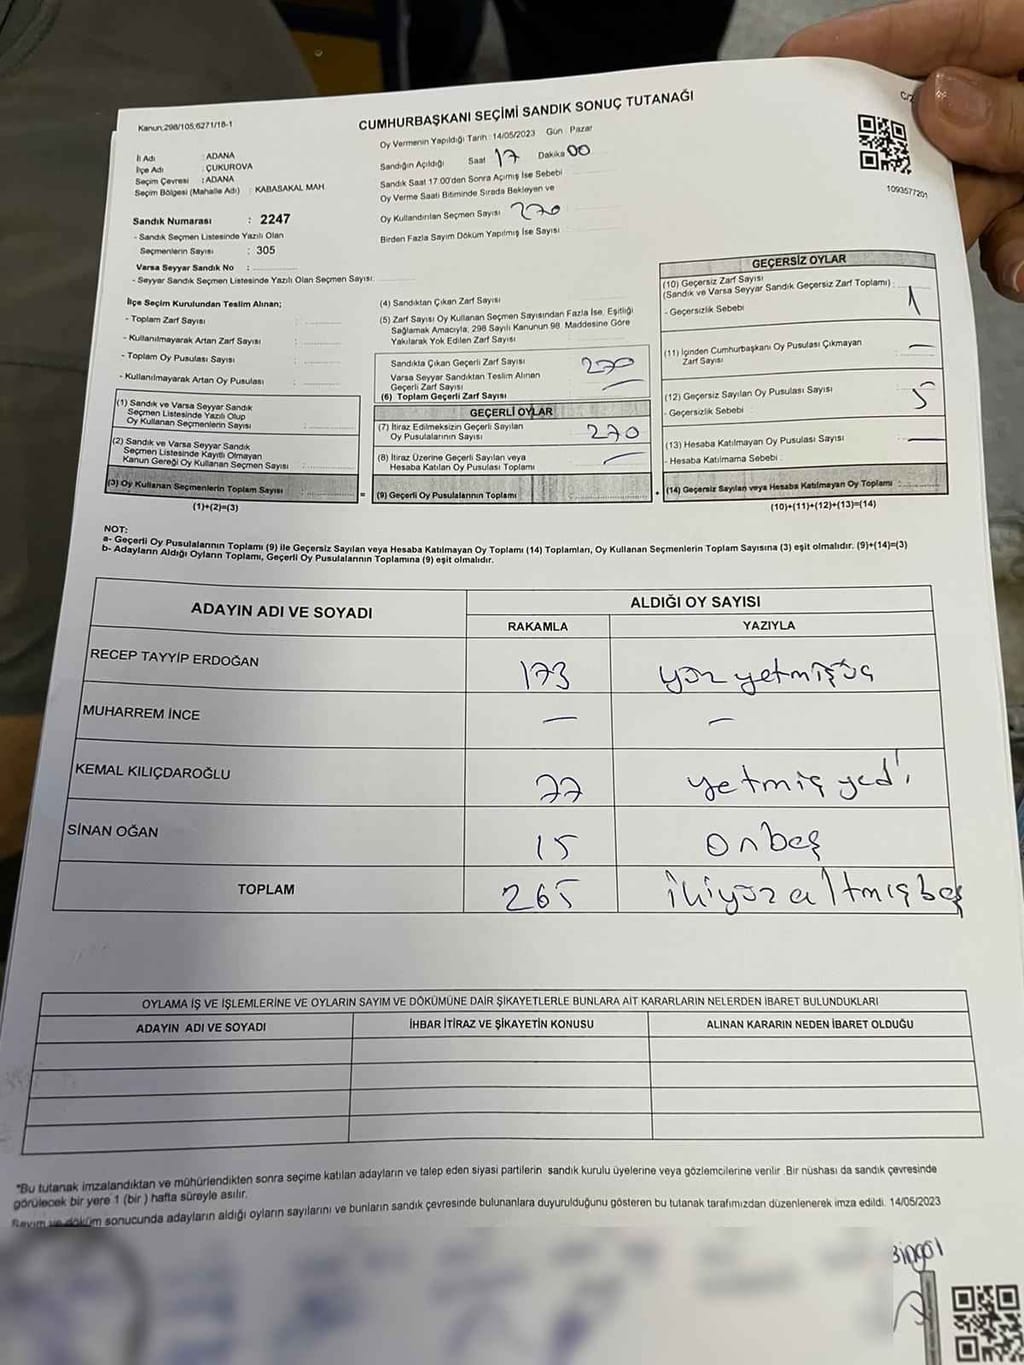 Kanun:298/105;6271/18-1
CUMHURBAŞKANI SEÇİMİ SANDIK SONUÇ TUTANAĞI
İl Adı : ADANA
İlçe Adı : ÇUKUROVA
Seçim Çevresi : ADANA
Seçim Bölgesi (Mahalle Adı) : KABASAKAL MAH.
Sandık Numarası : 2247
- Sandık Seçmen Listesinde Yazılı Olan
Seçmenlerin Sayısı : 305
Varsa Seyyar Sandık No :
- Seyyar Sandık Seçmen Listesinde Yazılı Olan Seçmen Sayısı:
Oy Vermenin Yapıldığı Tarih : 14/05/2023 Gün : Pazar
Sandığın Açıldığı Saat 17 Dakika 00
Sandık Saat 17.00'den Sonra Açımış İse Sebebi
Oy Verme Saati Bitiminde Sırada Bekleyen ve
Oy Kullandırılan Seçmen Sayısı 270
Birden Fazla Sayım Döküm Yapılmış İse Sayısı :
1093577201
İlçe Seçim Kurulundan Teslim Alınan;
- Toplam Zarf Sayısı :
- Kullanılmayarak Artan Zarf Sayısı :
- Toplam Oy Pusulası Sayısı :
- Kullanılmayarak Artan Oy Pusulası :
(1) Sandık ve Varsa Seyyar Sandık
Seçmen Listesinde Yazılı Olup
Oy Kullanan Seçmenlerin Sayısı :
(2) Sandık ve Varsa Seyyar Sandık
Seçmen Listesinde Kayıtlı Olmayan
Kanun Gereği Oy Kullanan Seçmen Sayısı :
(3) Oy Kullanan Seçmenlerin Toplam Sayısı :
(1)+(2)=(3)
(4) Sandıktan Çıkan Zarf Sayısı
(5) Zarf Sayısı Oy Kullanan Seçmen Sayısından Fazla İse, Eşitliği
Sağlamak Amacıyla, 298 Sayılı Kanunun 98. Maddesine Göre
Yakılarak Yok Edilen Zarf Sayısı
Sandıkta Çıkan Geçerli Zarf Sayısı 270
Varsa Seyyar Sandıktan Teslim Alınan
Geçerli Zarf Sayısı —
(6) Toplam Geçerli Zarf Sayısı
GEÇERLİ OYLAR
(7) İtiraz Edilmeksizin Geçerli Sayılan
Oy Pusulalarının Sayısı 270
(8) İtiraz Üzerine Geçerli Sayılan veya
Hesaba Katılan Oy Pusulası Toplamı —
= (9) Geçerli Oy Pusulalarının Toplamı +
GEÇERSİZ OYLAR
(10) Geçersiz Zarf Sayısı
(Sandık ve Varsa Seyyar Sandık Geçersiz Zarf Toplamı) : 1
- Geçersizlik Sebebi
(11) İçinden Cumhurbaşkanı Oy Pusulası Çıkmayan
Zarf Sayısı —
(12) Geçersiz Sayılan Oy Pusulası Sayısı 5
- Geçersizlik Sebebi
(13) Hesaba Katılmayan Oy Pusulası Sayısı —
- Hesaba Katılmama Sebebi :
(14) Geçersiz Sayılan veya Hesaba Katılmayan Oy Toplamı :
(10)+(11)+(12)+(13)=(14)
NOT:
a- Geçerli Oy Pusulalarının Toplamı (9) ile Geçersiz Sayılan veya Hesaba Katılmayan Oy Toplamı (14) Toplamları, Oy Kullanan Seçmenlerin Toplam Sayısına (3) eşit olmalıdır. (9)+(14)=(3)
b- Adayların Aldığı Oyların Toplamı, Geçerli Oy Pusulalarının Toplamına (9) eşit olmalıdır.
ADAYIN ADI VE SOYADI ALDIĞI OY SAYISI
RAKAMLA YAZIYLA
RECEP TAYYİP ERDOĞAN 173 yüz yetmişüç
MUHARREM İNCE — —
KEMAL KILIÇDAROĞLU 77 yetmiş yedi
SİNAN OĞAN 15 onbeş
TOPLAM 265 ikiyüz altmışbeş
OYLAMA İŞ VE İŞLEMLERİNE VE OYLARIN SAYIM VE DÖKÜMÜNE DAİR ŞİKAYETLERLE BUNLARA AİT KARARLARIN NELERDEN İBARET BULUNDUKLARI
ADAYIN ADI VE SOYADI İHBAR İTİRAZ VE ŞİKAYETİN KONUSU ALINAN KARARIN NEDEN İBARET OLDUĞU
"Bu tutanak imzalandıktan ve mühürlendikten sonra seçime katılan adayların ve talep eden siyasi partilerin sandık kurulu üyelerine veya gözlemcilerine verilir. Bir nüshası da sandık çevresinde
görülecek bir yere 1 (bir) hafta süreyle asılır.
Sayım ve döküm sonucunda adayların aldığı oyların sayılarını ve bunların sandık çevresinde bulunanlara duyurulduğunu gösteren bu tutanak tarafımızdan düzenlenerek imza edildi. 14/05/2023
Bingöl